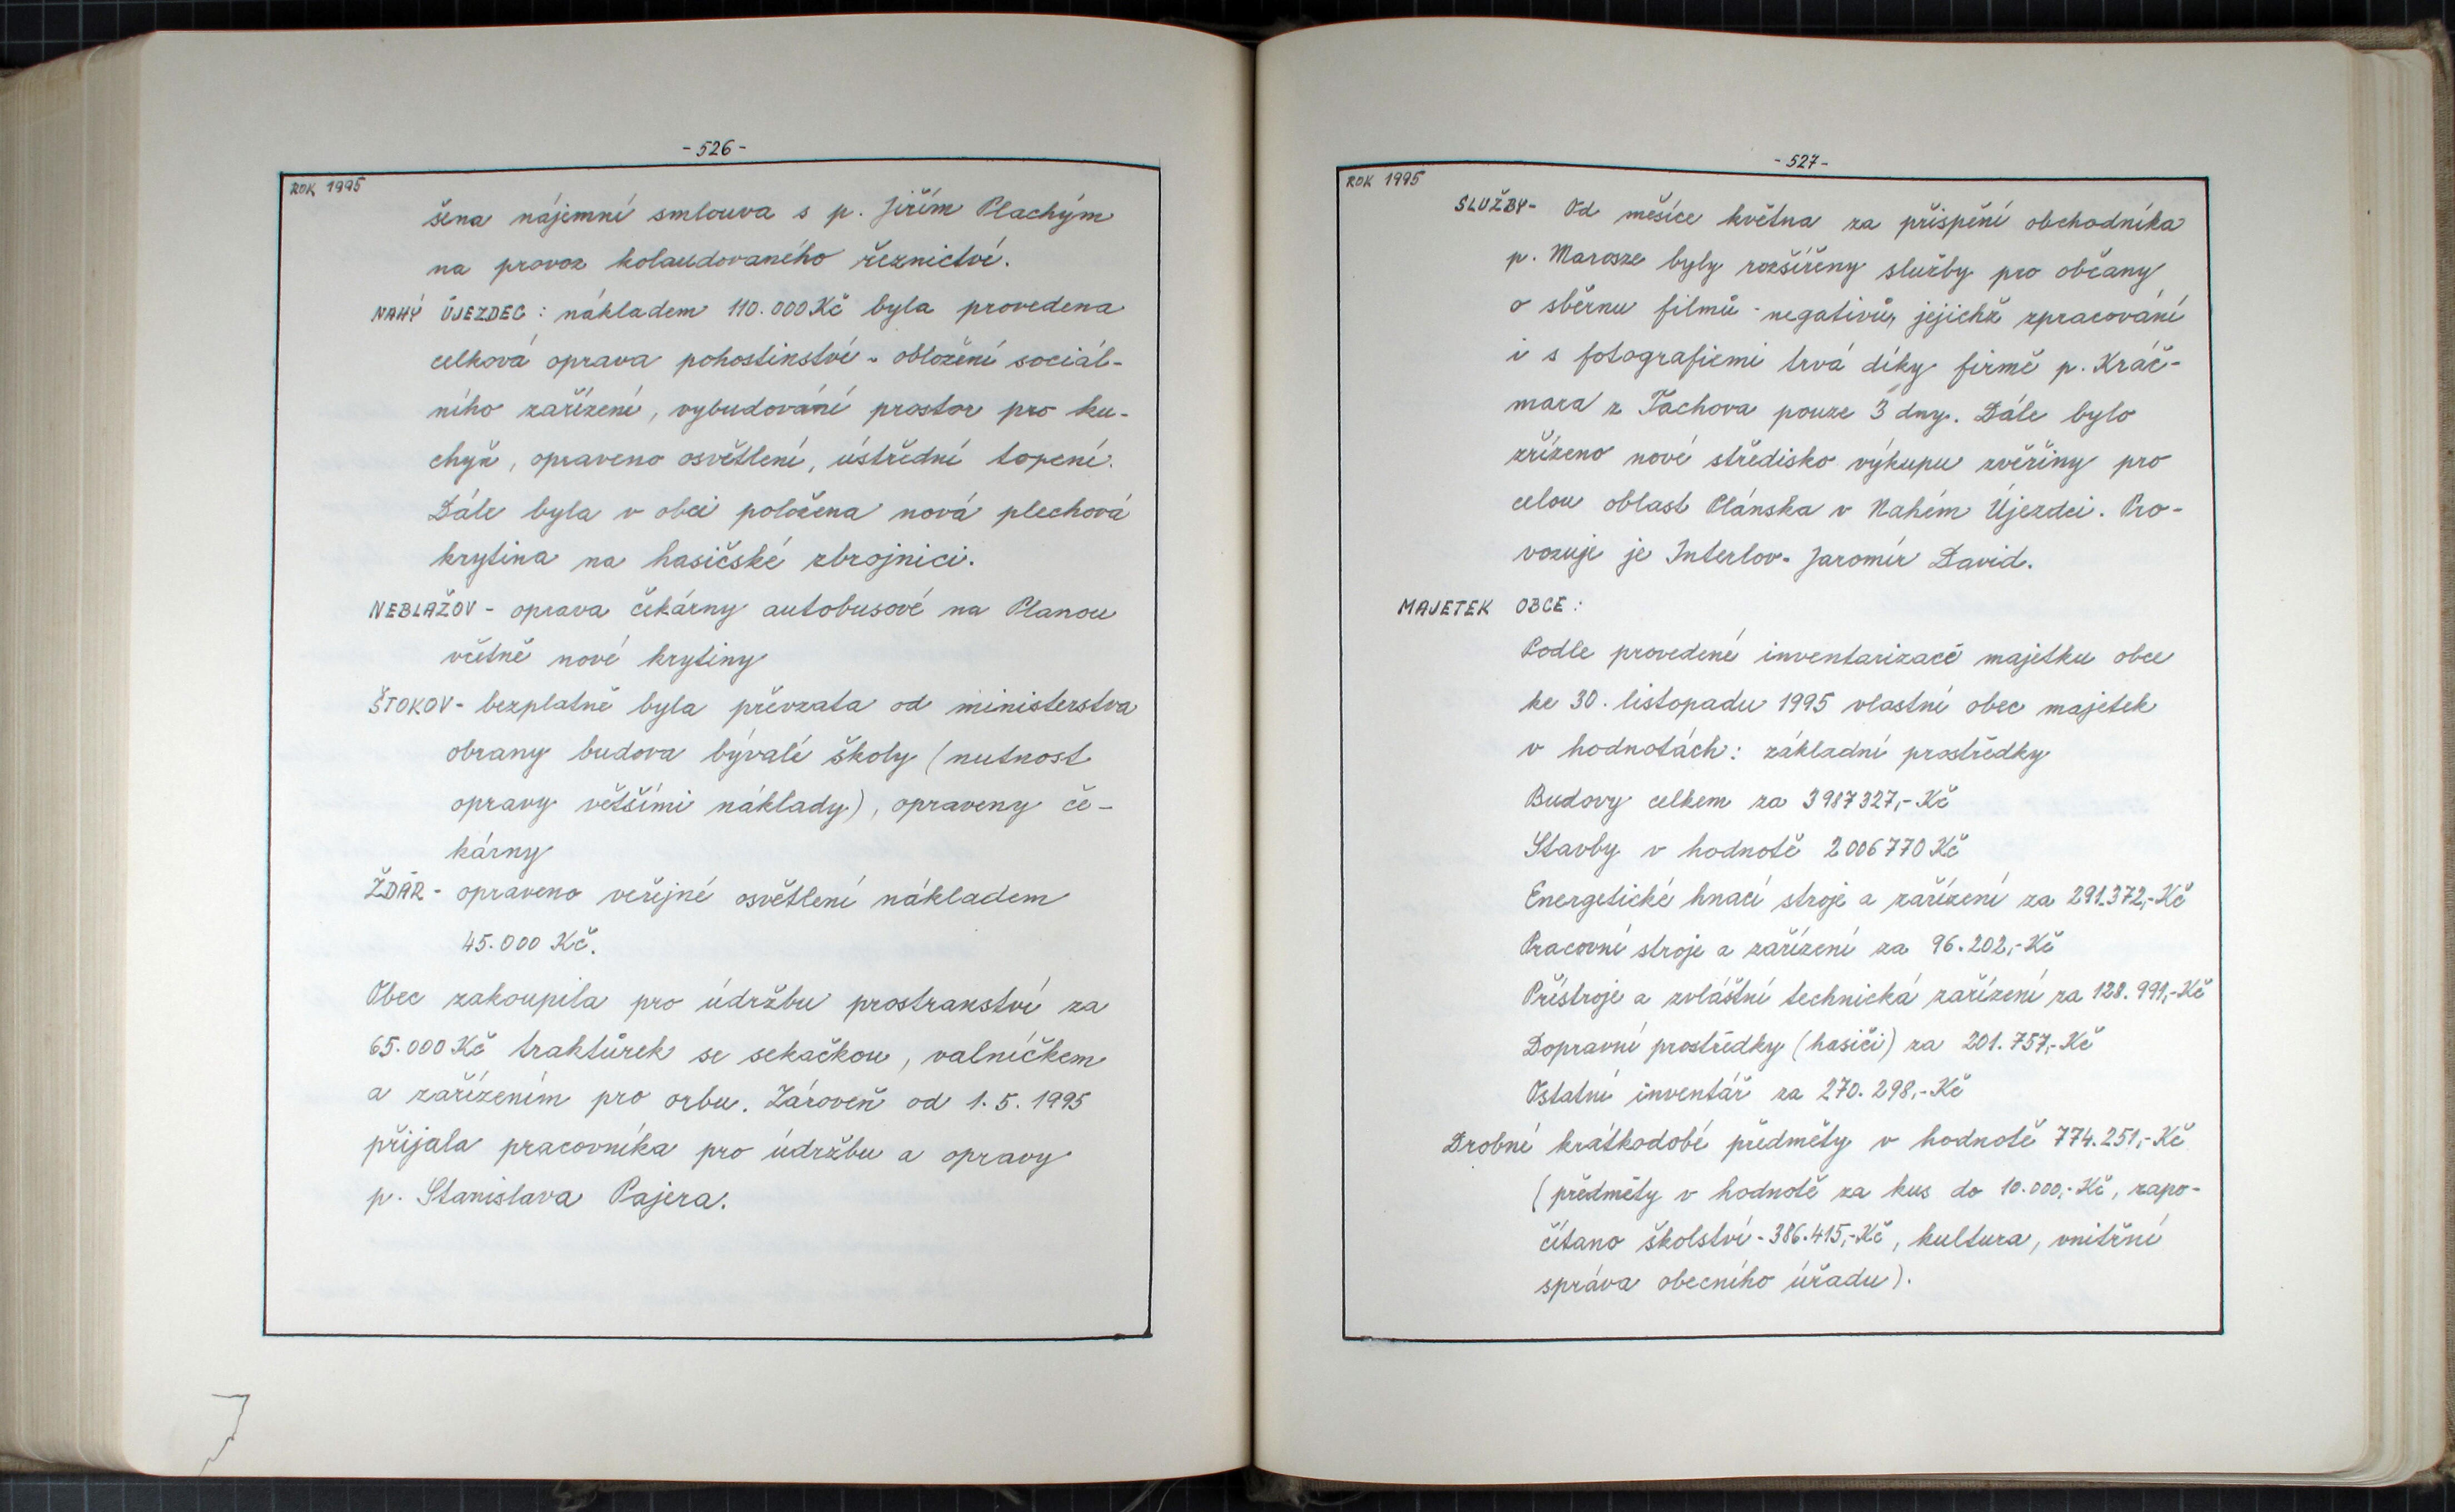 - 526 -
ROK 1995
šena nájemní smlouva s p. Jiřím Plachým
na provoz kolaudovaného řeznictví.
NAHÝ ÚJEZDEC : nákladem 110.000 Kč byla provedena
celková oprava pohostinství - obložení sociál-
ního zařízení, vybudování prostor pro ku-
chyň, opraveno osvětlení, ústřední topení.
Dále byla v obci položena nová plechová
krytina na hasičské zbrojnici.
NEBLAŽOV - oprava čekárny autobusové na Planou
včetně nové krytiny
ŠTOKOV - bezplatně byla převzata od ministerstva
obrany budova bývalé školy (nutnost
opravy většími náklady), opraveny če-
kárny
ŽDÁR - opraveno veřejné osvětlení nákladem
45.000 Kč.
Obec zakoupila pro údržbu prostranství za
65.000 Kč traktůrek se sekačkou, valníčkem
a zařízením pro orbu. Zároveň od 1. 5. 1995
přijala pracovníka pro údržbu a opravy
p. Stanislava Pajera.
- 527 -
ROK 1995
SLUŽBY - Od měsíce května za přispění obchodníka
p. Marosze byly rozšířeny služby pro občany
o sběrnu filmů - negativů, jejichž zpracování
i s fotografiemi trvá díky firmě p. Kráč-
mara z Tachova pouze 3 dny. Dále bylo
zřízeno nové středisko výkupu zvěřiny pro
celou oblast Plánska v Nahém Újezdci. Pro-
vozuje je Interlov - Jaromír David.
MAJETEK OBCE :
Podle provedené inventarizace majetku obce
ke 30. listopadu 1995 vlastní obec majetek
v hodnotách: základní prostředky
Budovy celkem za 3 987 327,- Kč
Stavby v hodnotě 2 006 770 Kč
Energetické hnací stroje a zařízení za 291.372,- Kč
Pracovní stroje a zařízení za 96.202,- Kč
Přístroje a zvláštní technická zařízení za 128.991,- Kč
Dopravní prostředky (hasiči) za 201.757,- Kč
Ostatní inventář za 270.298,- Kč
Drobné krátkodobé předměty v hodnotě 774.251,- Kč
(předměty v hodnotě za kus do 10.000,- Kč, zapo-
čítano školství - 386.415,- Kč, kultura, vnitřní
správa obecního úřadu).